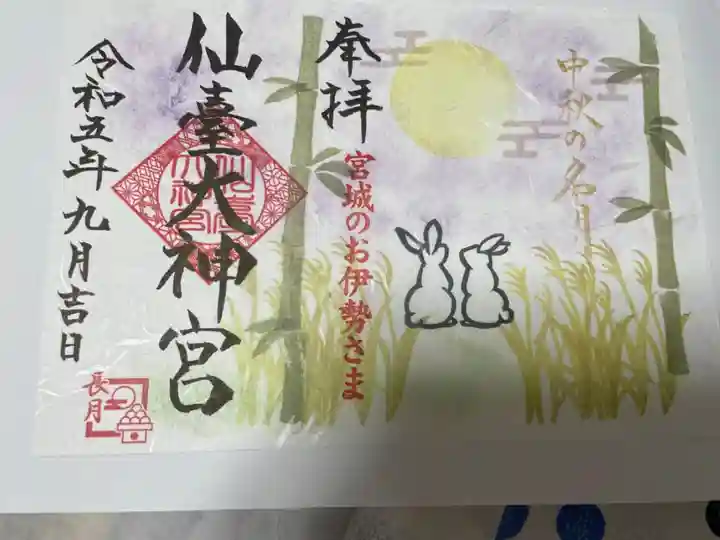 中秋の名月
奉拝
宮城のお伊勢さま
仙臺大神宮
令和五年九月吉日
長月